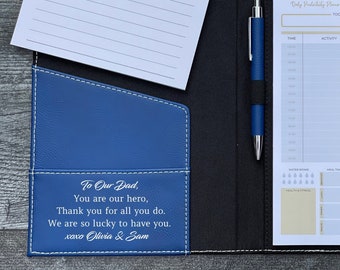 Daily Productivity Planner
TIME ACTIVITY
To Our Dad,
You are our hero,
Thank you for all you do.
We are so lucky to have you.
xoxo Olivia & Sam